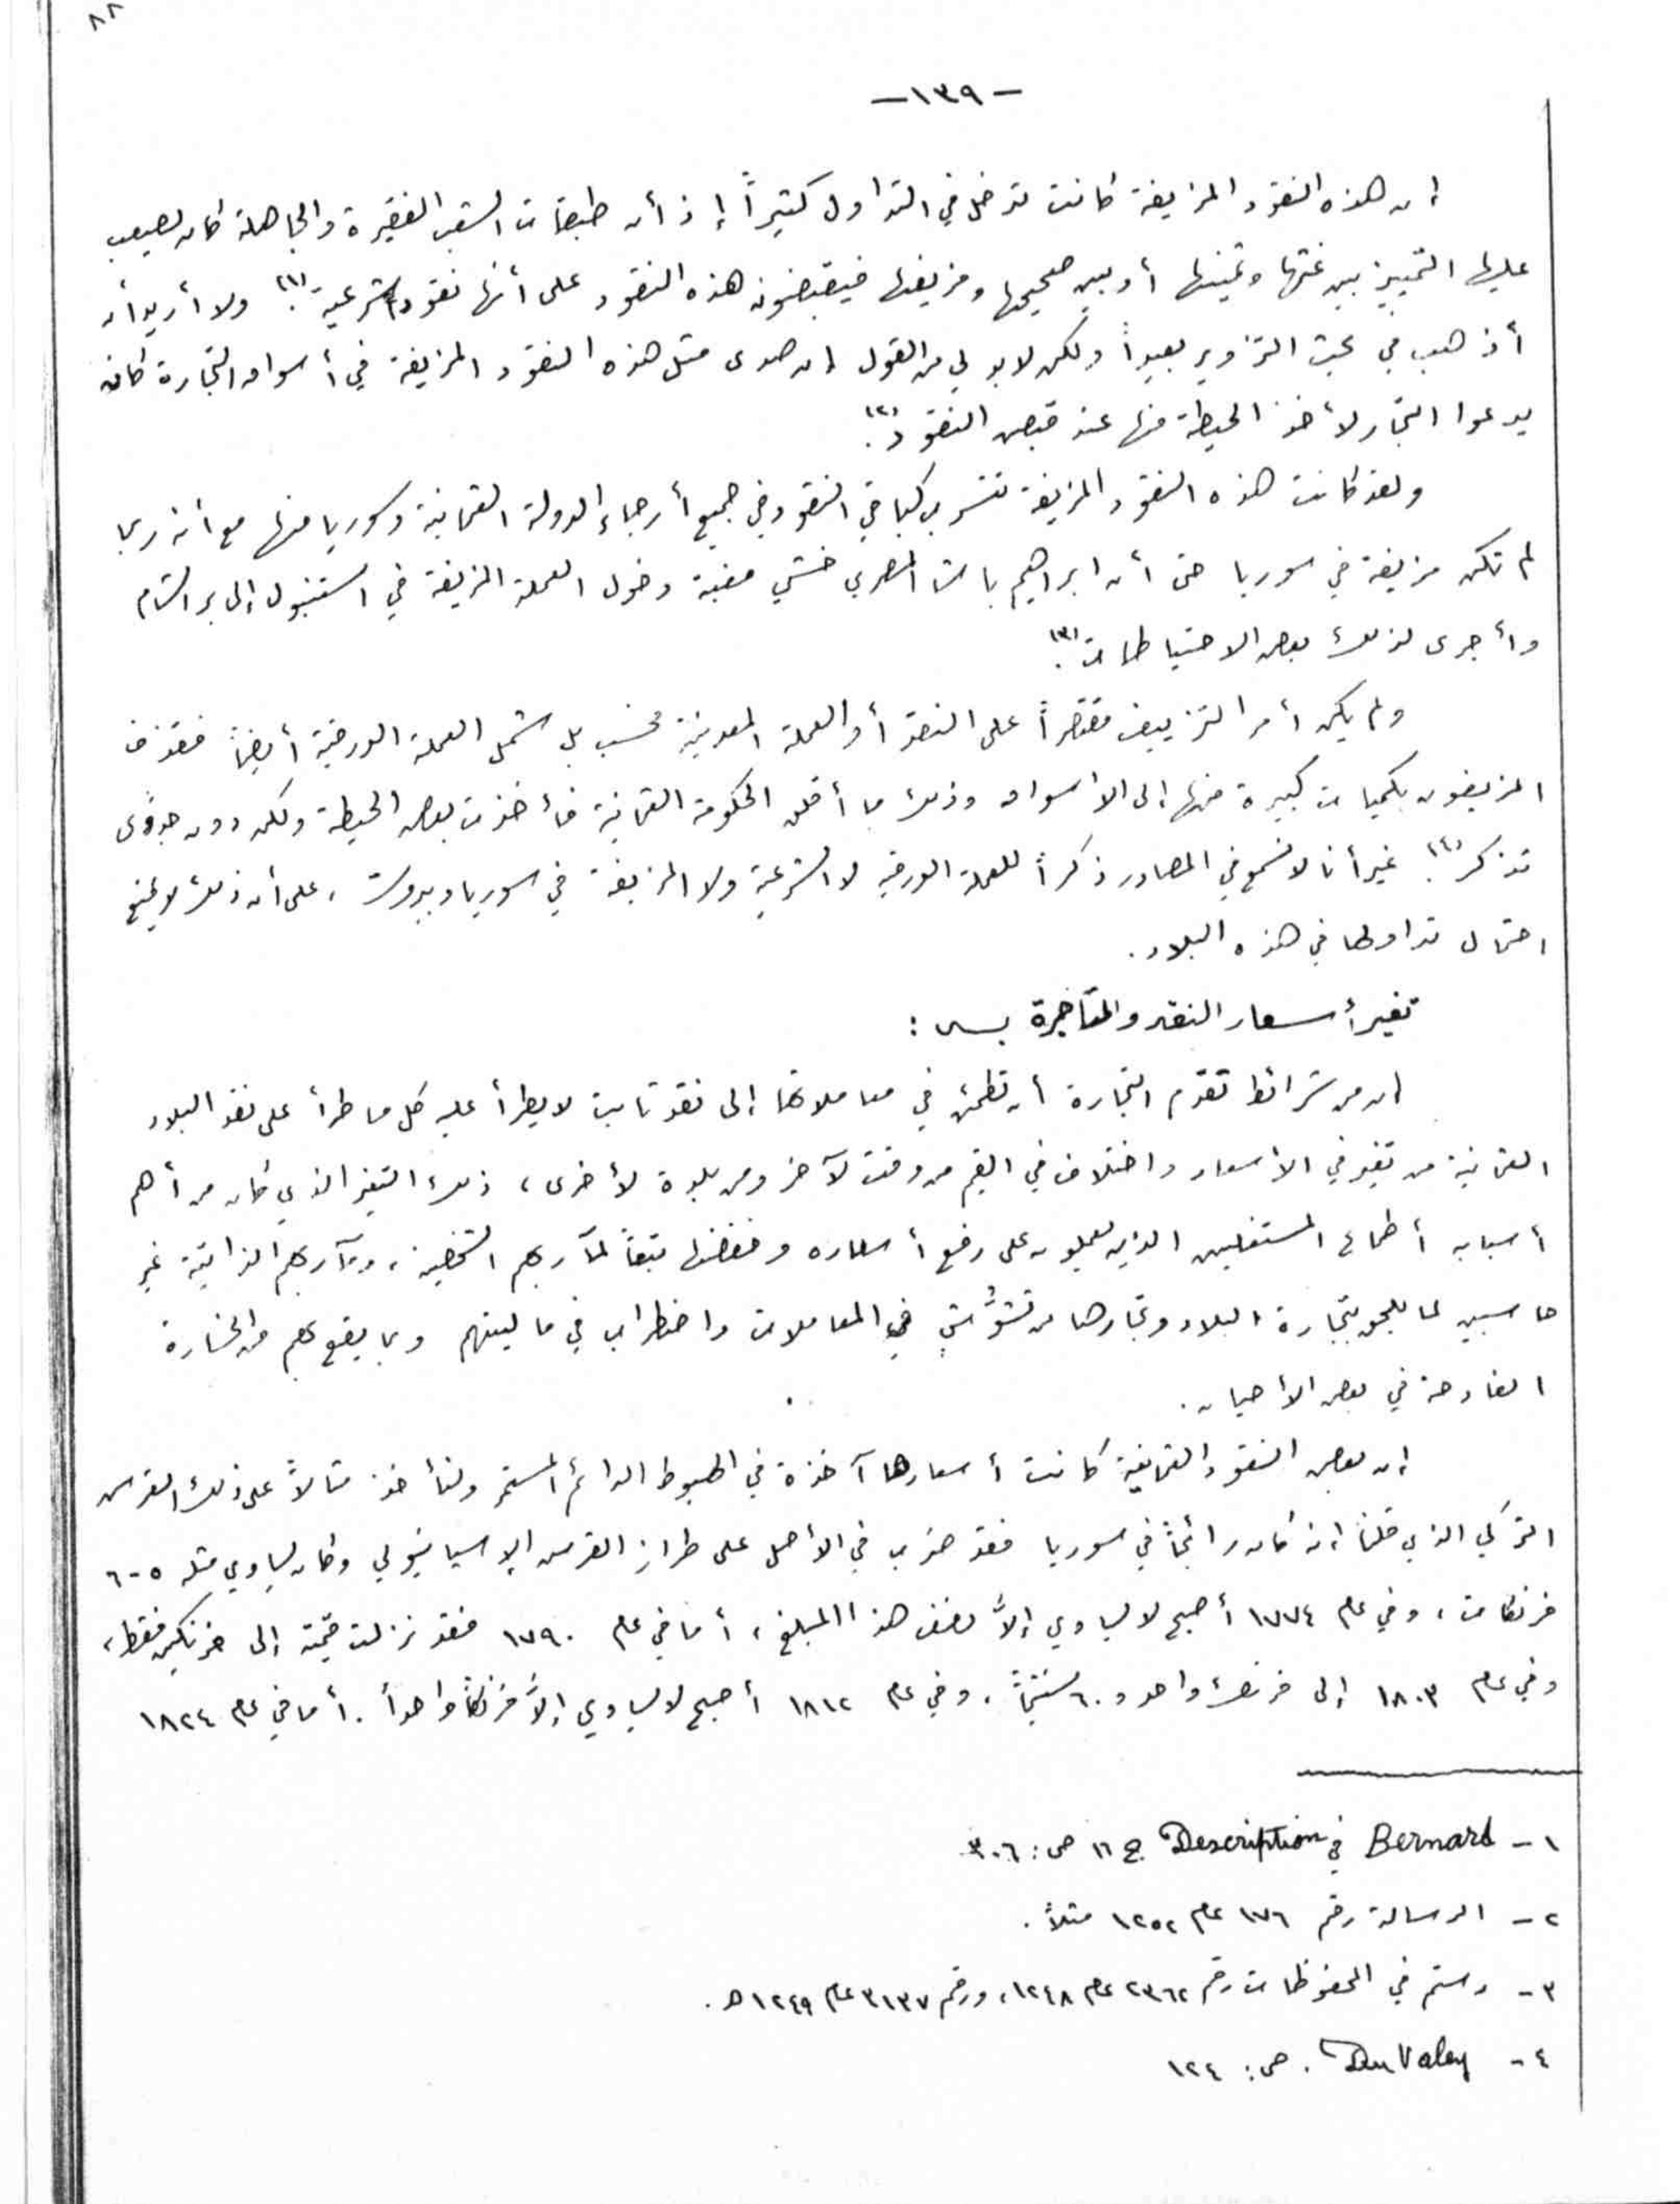 ٨٨
-١٣٩-
إن هذه النقود المزيفة كانت تدخل في التداول كثيراً إذ أن طبقات الشعب الفقيرة والجاهلة كان يصعب
عليها التمييز بين غثها وثمينها أو بين صحيحها ومزيفها فيقبضون هذه النقود على أنها نقود شرعية (١). ولا أريد أن
أذهب في بحث التزوير بعيداً ولكن لا بد لي من القول إن صدى مثل هذه النقود المزيفة في أسواق التجارة كان
يدعوا التجار لأخذ الحيطة منها عند قبض النقود (٢).
ولقد كانت هذه النقود المزيفة تتسرب كباقي النقود في جميع أرجاء الدولة العثمانية وسوريا منها مع أنه ربما
لم تكن مزيفة في سوريا حتى أن ابراهيم باشا المصري خشي مغبة دخول العملة المزيفة في استنبول إلى بر الشام
وأجرى لذلك بعض الاحتياطات (٣).
ولم يكن أمر التزييف مقتصراً على النقد أو العملة المعدنية فحسب بل شمل العملة الورقية أيضاً فقذف
المزيفون بكميات كبيرة منها إلى الأسواق وذلك ما أقلق الحكومة العثمانية فأخذت بعض الحيطة ولكن دون جدوى
تذكر (٤). غير أنا لا نسمع في المصادر ذكراً للعملة الورقية لا الشرعية ولا المزيفة في سوريا وبيروت، على أن ذلك لا يمنع
احتمال تداولها في هذه البلاد.
تغير أسعار النقد والمتاجرة به :
إن من شرائط تقدم التجارة أن تطمئن في معاملاتها إلى نقد ثابت لا يطرأ عليه كل ما طرأ على نقد البلاد
العثمانية من تغير في الأسعار واختلاف في القيم من وقت لآخر ومن بلدة لأخرى، ذلك التغير الذي كان من أهم
أسبابه أطماع المستغلين الذين يعملون على رفع أسعاره وخفضها تبعاً لمآربهم الشخصية، ومآربهم الذاتية غير
حاسبين لما يلحق بتجارة البلاد وتجارها من تشوُّشٍ في المعاملات واضطراب في ماليتهم وبما يقع بهم من الخسارة
الفادحة في بعض الأحيان.
إن بعض النقود العثمانية كانت أسعارها آخذة في الهبوط الدائم المستمر ولنأخذ مثالاً على ذلك القرش
التركي الذي قلنا إنه كان رائجاً في سوريا فقد ضرب في الأصل على طراز القرش الإسبانيولي وكان يساوي مثله ٥-٦
فرنكات، وفي عام ١٧٧٤ أصبح لا يساوي إلاَّ نصف هذا المبلغ، أما في عام ١٧٩٠ فقد نزلت قيمته إلى فرنكين فقط،
وفي عام ١٨٠٣ إلى فرنك واحد و٦٠ سنتيماً، وفي عام ١٨١٢ أصبح لا يساوي إلاَّ فرنكاً واحداً. أما في عام ١٨٢٤
١- Bernard في Description ج ١٦ ص: ٣٠٦
٢- الرسالة رقم ١٧٦ عام ١٢٥٢ مثلاً.
٣- رستم في المحفوظات رقم ٢٣٦٢ عام ١٢٤٨، ورقم ٣١٣٧ عام ١٢٤٩ ه.
٤- Du Valey. ص: ١٢٤